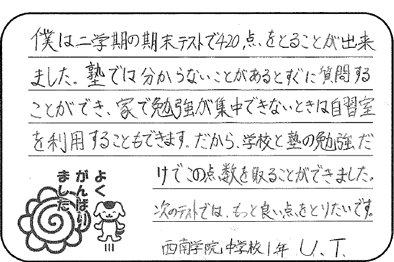 僕は二学期の期末テストで420点、をとることが出来
ました。塾では分からないことがあるとすぐに質問する
ことができ、家で勉強が集中できないときは自習室
を利用することもできます。だから、学校と塾の勉強だ
けでこの点数を取ることができました。
次のテストでは、もっと良い点をとりたいです。
西南学院中学校1年 U.T.
よく
がんばり
ました